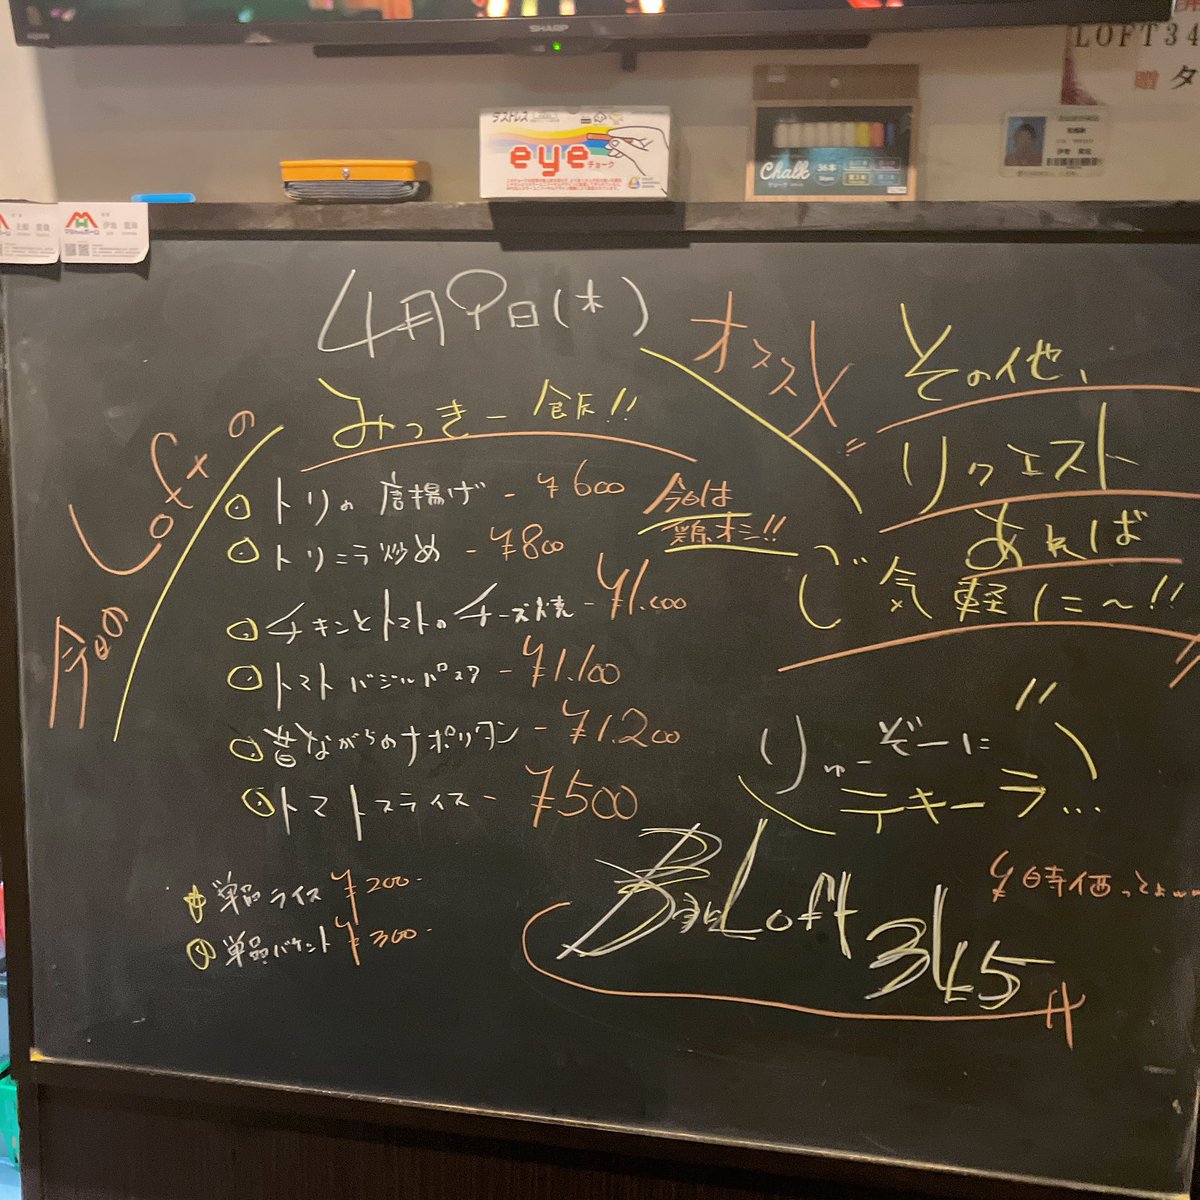 SHARP
LOFT34
贈
タ
ダストレス
eyeチョーク
Chalk
チョーク
36本
4月9日(木)
今日の
Loftの
オススメ!!
みっきー飯!!
トリの唐揚げ - ¥600
トリニラ炒め - ¥800
チキンとトマトのチーズ焼 - ¥1.000
トマトバジルパスタ - ¥1.100
昔ながらのナポリタン - ¥1.200
トマトスライス - ¥500
今日は
鶏オシ!!
単品ライス ¥200-
単品バケット ¥300-
その他、
リクエスト
あれば
ご気軽に〜!!
りゅーぞーに
テキーラ...
¥時価ってよ...
Bar Loft
345